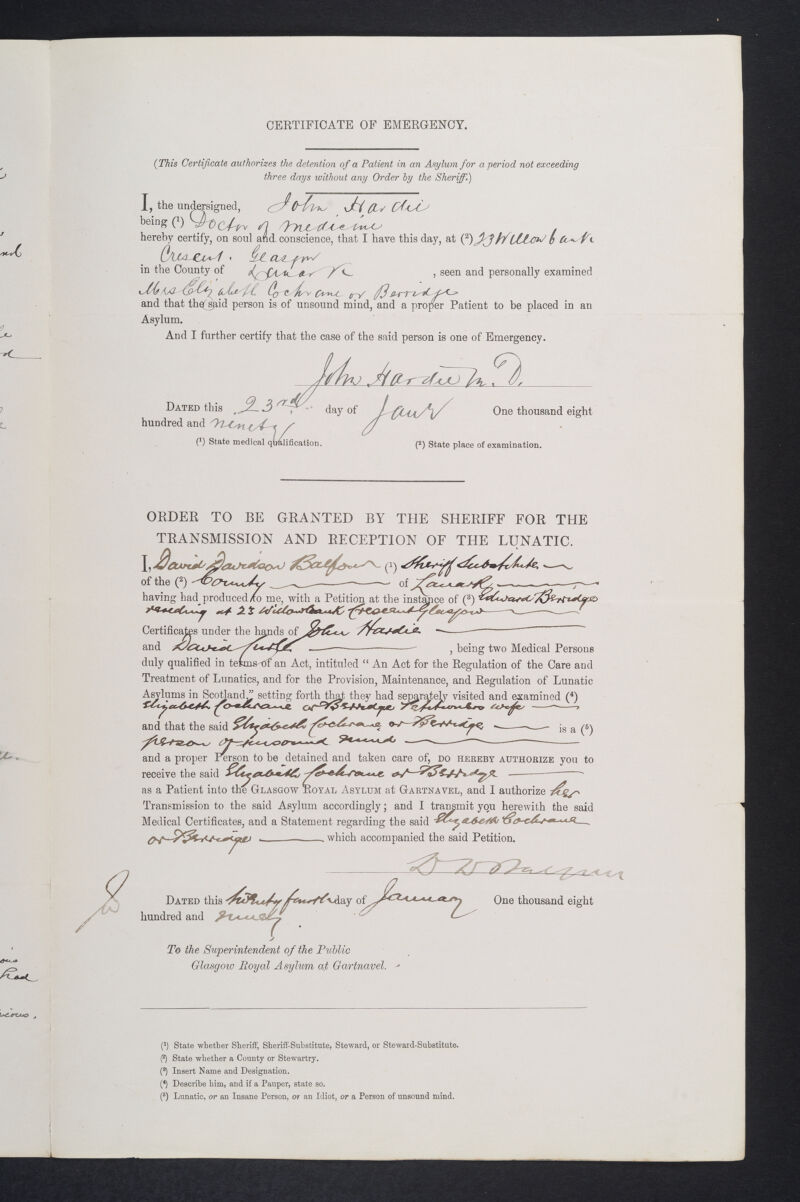 CERTIFICATE OF EMERGENCY.
(This Certificate authorizes the detention of a Patient in an Asylum for a period not exceeding
three days without any Order by the Sheriff.)
I, the undersigned, John Hardie
being (¹) Doctor of medicine
hereby certify, on soul and conscience, that I have this day, at (²) 23 Willowbank
Cresent. Glasgow
in the County of Lanark , seen and personally examined
Mrs Elizabeth Cochrane or Berridge
and that the said person is of unsound mind, and a proper Patient to be placed in an
Asylum.
And I further certify that the case of the said person is one of Emergency.
John Hardie M.D.
DATED this 23rd day of Jany One thousand eight
hundred and ninety
(¹) State medical qualification. (²) State place of examination.
ORDER TO BE GRANTED BY THE SHERIFF FOR THE
TRANSMISSION AND RECEPTION OF THE LUNATIC.
I, David Davidson Balfour (¹) Sheriff Substitute
of the (²) County of Lanark,
having had produced to me, with a Petition at the instance of (³) Edward Berridge
residing at 23 Willowbank Crescent Glasgow
Certificates under the hands of John Hardie
and David , being two Medical Persons
duly qualified in terms of an Act, intituled “ An Act for the Regulation of the Care and
Treatment of Lunatics, and for the Provision, Maintenance, and Regulation of Lunatic
Asylums in Scotland,” setting forth that they had separately visited and examined (⁴)
Elizabeth Cochrane or Berridge Petitioners wife
and that the said Elizabeth Cochrane or Berridge is a (⁵)
person of unsound mind
and a proper Person to be detained and taken care of, DO HEREBY AUTHORIZE you to
receive the said Elizabeth Cochrane or Berridge
as a Patient into the GLASGOW ROYAL ASYLUM at GARTNAVEL, and I authorize her
Transmission to the said Asylum accordingly; and I transmit you herewith the said
Medical Certificates, and a Statement regarding the said Elizabeth Cochrane
or Berridge , which accompanied the said Petition.
D D Balfour
DATED this twenty fourth day of January One thousand eight
hundred and ninety.
To the Superintendent of the Public
Glasgow Royal Asylum at Gartnavel.
(¹) State whether Sheriff, Sheriff-Substitute, Steward, or Steward-Substitute.
(²) State whether a County or Stewartry.
(³) Insert Name and Designation.
(⁴) Describe him, and if a Pauper, state so.
(⁵) Lunatic, or an Insane Person, or an Idiot, or a Person of unsound mind.